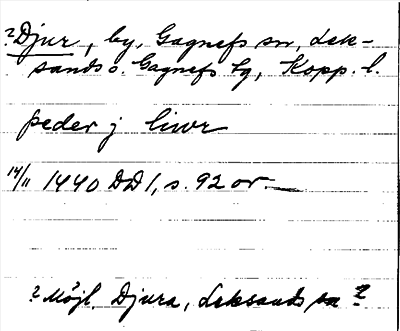 ?Djur, by, Gagnefs sn, Lek-
sands o. Gagnefs tg, Kopp. l.
peder j liwr
14/11 1440 DD 1, s. 92 or.
? Möjl. Djura, Leksands sn ?